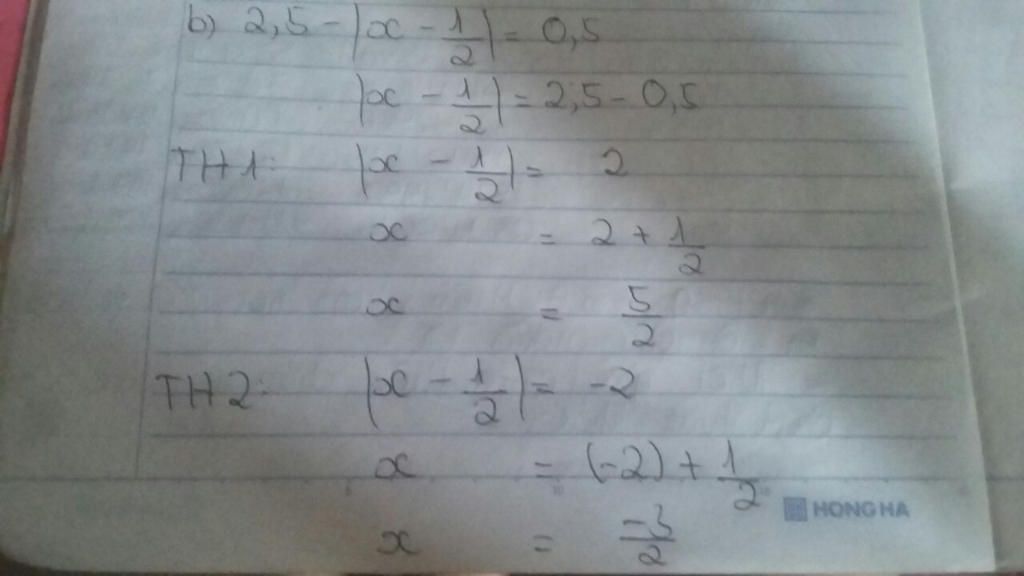 b) 2,5 - |x - 1/2| = 0,5
|x - 1/2| = 2,5 - 0,5
TH1: |x - 1/2| = 2
x = 2 + 1/2
x = 5/2
TH2: |x - 1/2| = -2
x = (-2) + 1/2
HONG HA
x = -3/2